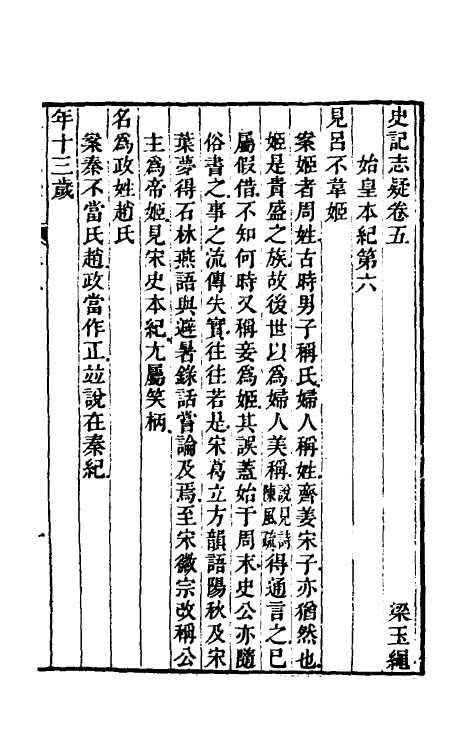 史記志疑卷五　梁玉繩
始皇本紀第六
見呂不韋姬
案姬者周姓古時男子稱氏婦人稱姓齊姜宋子亦猶然也
姬是貴盛之族故後世以為婦人美稱說見詩陳風疏得通言之已
屬假借不知何時又稱妾為姬其誤葢始于周末史公亦隨
俗書之事之流傳失實往往若是宋葛立方韻語陽秋及宋
葉夢得石林燕語與避暑錄話嘗論及焉至宋徽宗改稱公
主為帝姬見宋史本紀尢屬笑柄
名為政姓趙氏
案秦不當氏趙政當作正竝說在秦紀
年十三歲